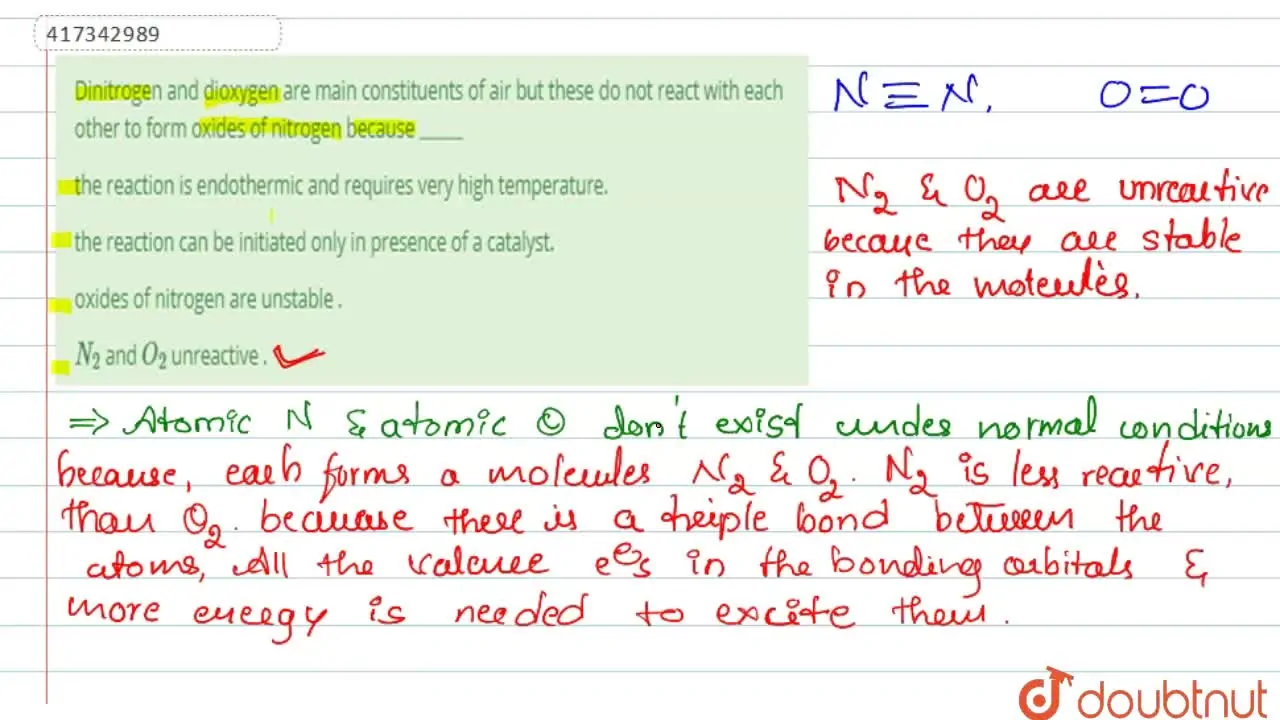 417342989
Dinitrogen and dioxygen are main constituents of air but these do not react with each
other to form oxides of nitrogen because ____
the reaction is endothermic and requires very high temperature.
the reaction can be initiated only in presence of a catalyst.
oxides of nitrogen are unstable .
N₂ and O₂ unreactive .
N≡N, O=O
N₂ & O₂ are unreactive
because they are stable
in the molecules.
⇒ Atomic N & atomic O don't exist under normal conditions
because, each forms a molecules N₂ & O₂. N₂ is less reactive,
than O₂. because there is a triple bond between the
atoms, All the valence e⁻s in the bonding orbitals &
more energy is needed to excite them.
doubtnut